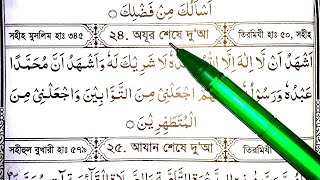 اَسْأَلُكَ مِنْ فَضْلِكَ
সহীহ মুসলিম হাঃ ৩৪৫
২৪. অযূর শেষে দু'আ
তিরমিযী হাঃ ৫০, সহীহ
اَشْهَدُ اَنْ لَّا اِلٰهَ اِلَّا اللهُ لَا شَرِيْكَ لَهٗ وَاَشْهَدُ اَنَّ مُحَمَّدًا
عَبْدُهٗ وَرَسُوْلُهٗ اجْعَلْنِيْ مِنَ التَّوَّابِيْنَ وَاجْعَلْنِيْ مِنَ
الْمُتَطَهِّرِيْنَ
সহীহুল বুখারী হাঃ ৫৭৯
২৫. আযান শেষে দু'আ